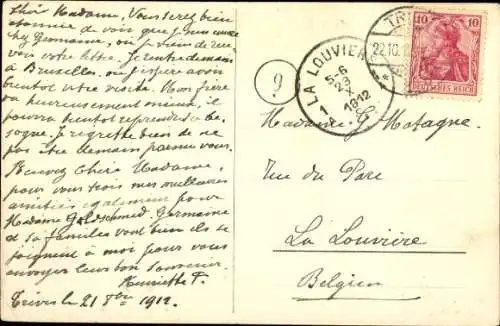 Chère Madame, Vous serez bien
étonnée de voir que je suis encore
chez Germaine, où je viens de rece-
voir votre lettre. Je rentre demain
à Bruxelles, où j'espère avoir
bientôt votre visite. Mon frère
va heureusement mieux, il
pourra bientôt reprendre sa be-
sogne. Je regrette bien de ne
pas être demain parmi vous.
Recevez Chère Madame,
pour vous trois mes meilleures
amitiés également pour
Madame Goldschmed. Germaine
et sa famille vont bien ils se
joignent à moi pour vous
envoyer leur bon souvenir.
Henriette F.
Trèves le 21 8bre 1912.
9
LA LOUVIÈRE
5-6
23
X
1912
1 A
TR
22.10.12
10 10
DEUTSCHES REICH
Madame J. Matagne.
rue du Parc
La Louvière
Belgien